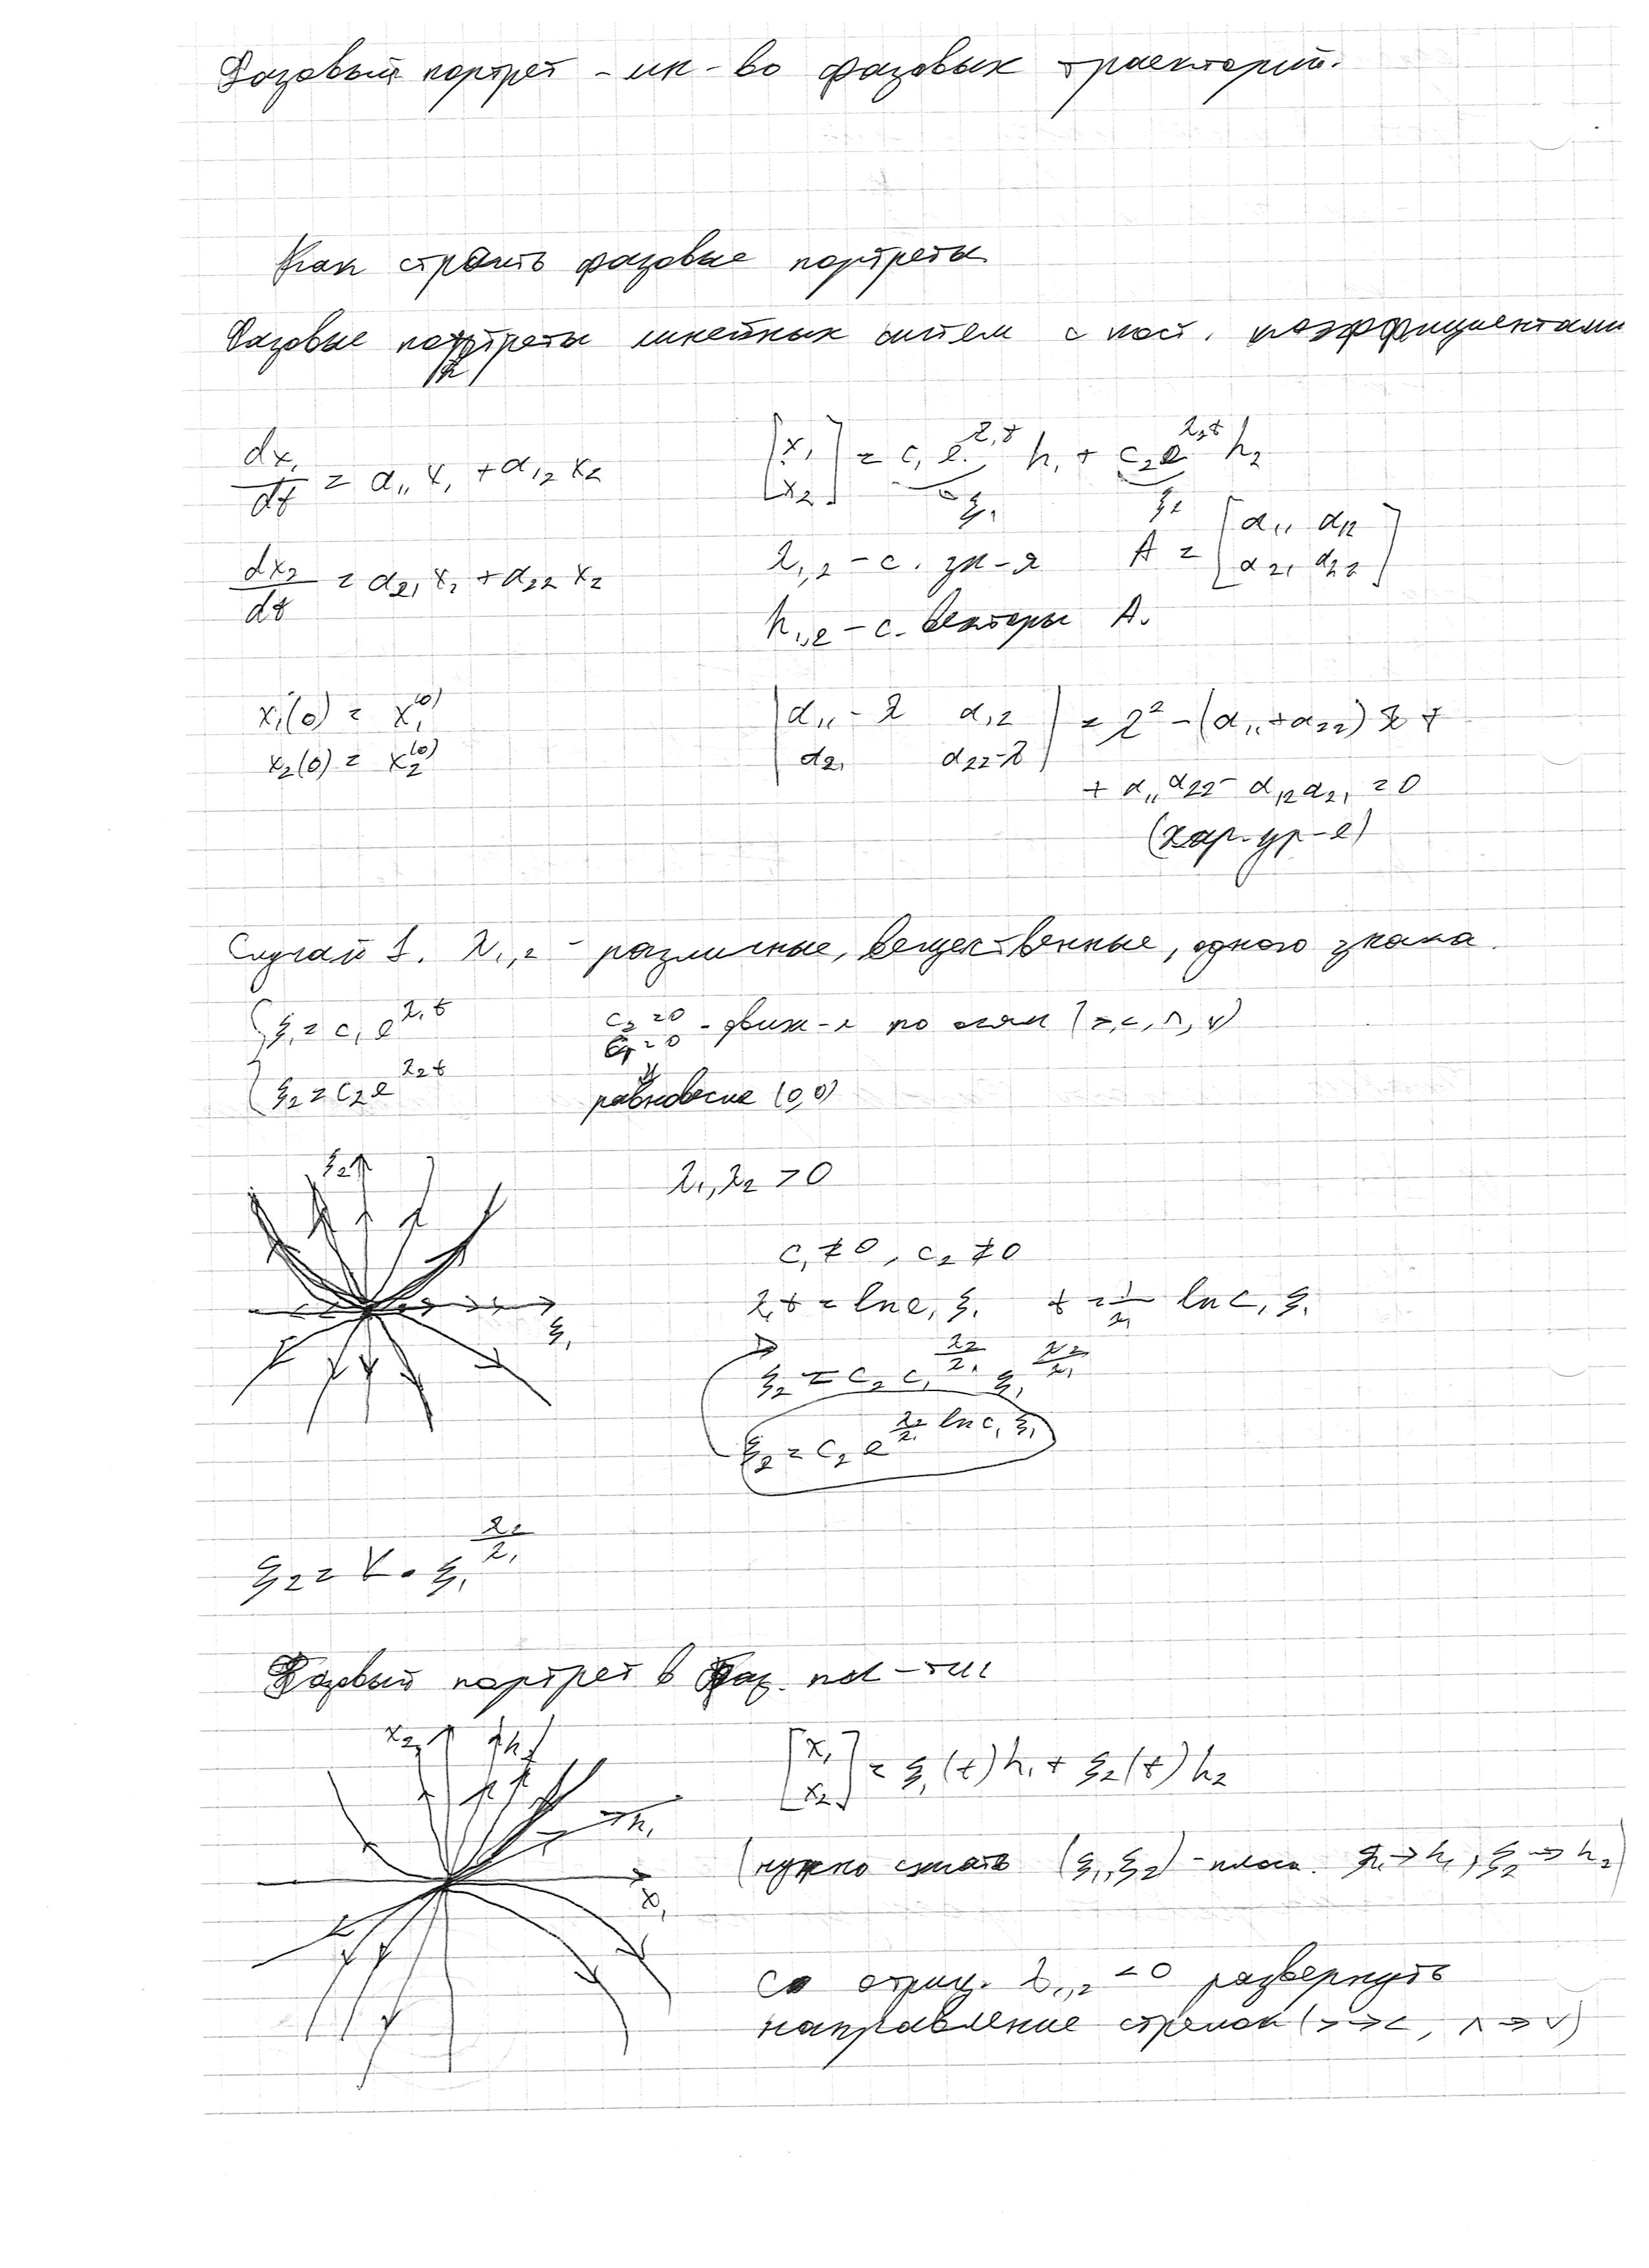 Фазовый портрет - мн-во фазовых траекторий.
Как строить фазовые портреты
Фазовые портреты линейных систем с пост. коэффициентами
dx₁/dt = a₁₁x₁ + a₁₂x₂
[x₁ x₂] = c₁e^{λ₁t} h₁ + c₂e^{λ₂t} h₂
ξ₁ ξ₂
dx₂/dt = a₂₁x₁ + a₂₂x₂
λ₁,₂ - с. зн-я A = [a₁₁ a₁₂ a₂₁ a₂₂]
h₁,₂ - с. векторы A.
x₁(0) = x₁^{(0)}
x₂(0) = x₂^{(0)}
|a₁₁-λ a₁₂ a₂₁ a₂₂-λ| = λ² - (a₁₁+a₂₂)λ +
+ a₁₁a₂₂ - a₁₂a₂₁ = 0
(хар. ур-е)
Случай 1. λ₁,₂ - различные, вещественные, одного знака.
{ξ₁ = c₁e^{λ₁t}
ξ₂ = c₂e^{λ₂t}
c₂=0
c₁=0 - движ-е по осям (>,<,∧,∨)
⇓
равновесие (0,0)
ξ₂
ξ₁
λ₁, λ₂ > 0
c₁≠0, c₂≠0
λ₁t = ln c₁ξ₁ t = 1/λ₁ ln c₁ξ₁
ξ₂ = c₂c₁^{λ₂/λ₁} ξ₁^{λ₂/λ₁}
ξ₂ = c₂e^{λ₂/λ₁ ln c₁ξ₁}
ξ₂ = K·ξ₁^{λ₂/λ₁}
Фазовый портрет в фаз. пл-ти
x₂ h₂
h₁
x₁
[x₁ x₂] = ξ₁(t)h₁ + ξ₂(t)h₂
(нужно сжать (ξ₁,ξ₂)-плоск. ξ₁→h₁, ξ₂→h₂)
Со отриц. λ₁,₂ <0 развернуть
направление стрелок (>→<, ∧→∨)